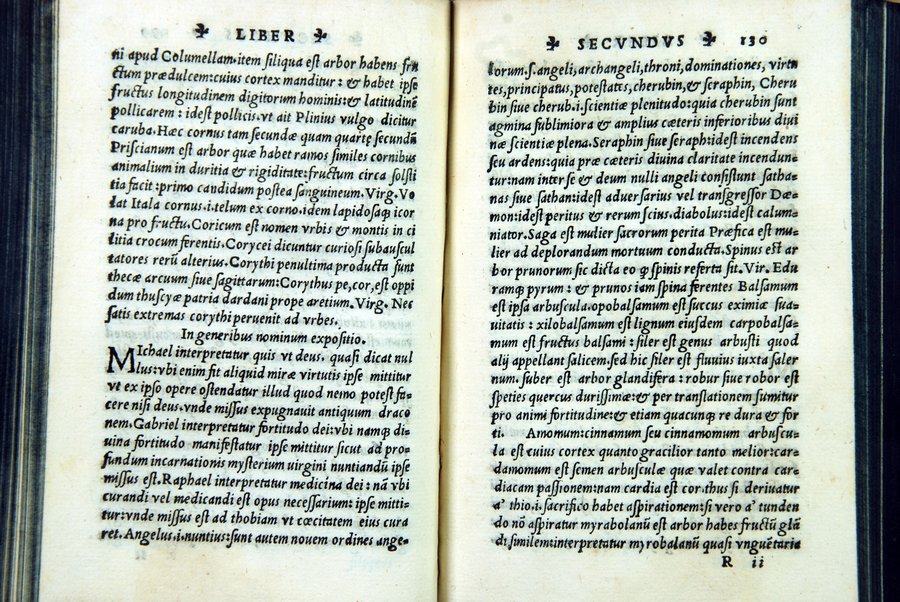 LIBER
ni apud Columellam.item siliqua est arbor habens fru
ctum prædulcem:cuius cortex manditur: & habet ipse
fructus longitudinem digitorum hominis:& latitudinẽ
pollicarem: idest pollicis.vt ait Plinius vulgo dicitur
caruba. Hæc cornus tam secundæ quam quarte secundũ
Priscianum est arbor quæ habet ramos similes cornibus
animalium in duritia & rigiditate:fructum circa solsti
tia facit:primo candidum postea sanguineum. Virg. Vo
lat Itala cornus.i.telum ex corno.idem lapidosaq; icor
na pro fructu. Coricum est nomen vrbis & montis in ci
litia crocum ferentis. Corycei dicuntur curiosi subauscul
tatores rerũ alterius. Corythi penultima producta sunt
thecæ arcuum siue sagittarum: Corythus pe, cor, est oppi
dum thusciæ patria dardani prope aretium. Virg. Nec
satis extremas corythi peruenit ad vrbes.
In generibus nominum expositio.
MIchael interpretatur quis vt deus. quasi dicat nul
lus:vbi enim fit aliquid miræ virtutis ipse mittitur
vt ex ipso opere ostendatur illud quod nemo potest fa-
cere nisi deus.vnde missus expugnauit antiquum draco
nem. Gabriel interpretatur fortitudo dei: vbi namq; di-
uina fortitudo manifestatur ipse mittitur sicut ad pro-
fundum incarnationis mysterium virgini nuntiandũ ipse
missus est. Raphael interpretatur medicina dei: nã vbi
curandi vel medicandi est opus necessarium: ipse mitti-
tur:vnde missus est ad thobiam vt cœcitatem eius cura
ret. Angelus.i.nuntius:sunt autem nouem ordines ange-
SECVNDVS 130
lorum.s.angeli,archangeli,throni,dominationes, virtu
tes,principatus,potestates,cherubin,& seraphin, Cheru
bin siue cherub.i.scientiæ plenitudo:quia cherubin sunt
agmina sublimiora & amplius cæteris inferioribus diui
næ scientiæ plena. Seraphin siue seraph:idest incendens
seu ardens:quia præ cæteris diuina claritate incendun-
tur:nam inter se & deum nulli angeli consistunt satha-
nas siue sathan:idest aduersarius vel transgressor Dæ-
mon:idest peritus & rerum scius.diabolus:idest calum-
niator. Saga est mulier sacrorum perita Præfica est mu-
lier ad deplorandum mortuum conducta. Spinus est ar
bor prunorum sic dicta eo q spinis referta sit. Vir. Edu
ramq; pyrum: & prunos iam spina ferentes Balsamum
est ipsa arbuscula.opobalsamum est succus eximiæ sua-
uitatis: xilobalsamum est lignum eiusdem carpobalsa-
mum est fructus balsami: siler est genus arbusti quod
alij appellant salicem.sed hic siler est fluuius iuxta saler
num. suber est arbor glandifera: robur siue robor est
speties quercus durissimæ:& per translationem sumitur
pro animi fortitudine:& etiam quacunq; re dura & for
ti. Amomum:cinnamum seu cinnamomum arbuscu-
la est cuius cortex quanto gracilior tanto melior:car-
damomum est semen arbusculæ quæ valet contra car-
diacam passionem:nam cardia est cor.thus si deriuatur
a' thio.i.sacrifico habet aspirationem:si vero a' tunden
do nõ aspiratur myrabolanũ est arbor habẽs fructũ glã
di similem:interpretatur myrobalanũ quasi vnguẽtaria
R ii